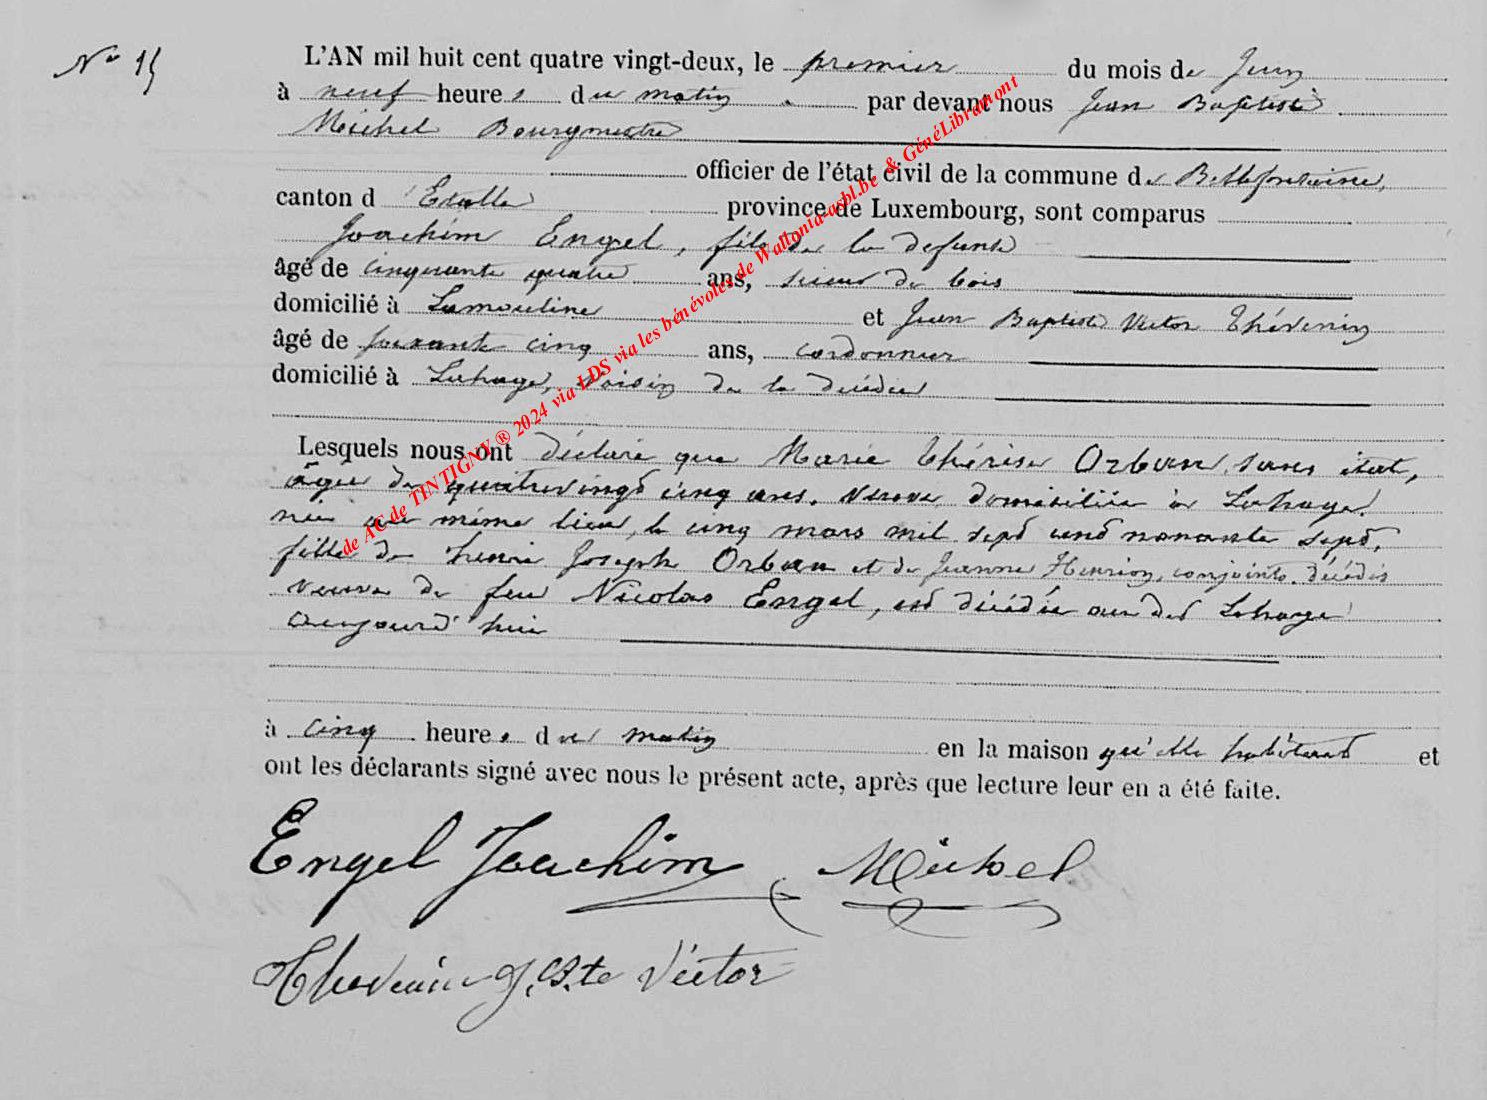 N° 15
L'AN mil huit cent quatre vingt-deux, le premier du mois de Juin
à neuf heures du matin par devant nous Jean Baptiste
Michel Bourgmestre
officier de l'état civil de la commune de Bellefontaine,
canton d'Etalle province de Luxembourg, sont comparus
Joachim Engel, fils de la defunte
âgé de cinquante quatre ans, scieur de bois
domicilié à Lamouline et Jean Baptiste Victor Thévenin
âgé de soixante cinq ans, cordonnier
domicilié à Lahage, voisin de la décédée
Lesquels nous ont déclaré que Marie Thérèse Orban, sans état,
âgée de quatrevingt cinq ans, veuve, domiciliée à Lahage,
née au même lieu, le cinq mars mil sept cent nonante sept,
fille de henri Joseph Orban et de Jeanne Henrion, conjoints décédés
veuve de feu Nicolas Engel, est décédée au dit Lahage
aujourd'hui
à cinq heures du matin en la maison qu'elle habitait et
ont les déclarants signé avec nous le présent acte, après que lecture leur en a été faite.
Engel Joachim Michel
Thevenin J. Bte Victor
de AC de TINTIGNY ® 2024 via LDS via les bénévoles de Wallonia-asbl.be & GénéLibramont